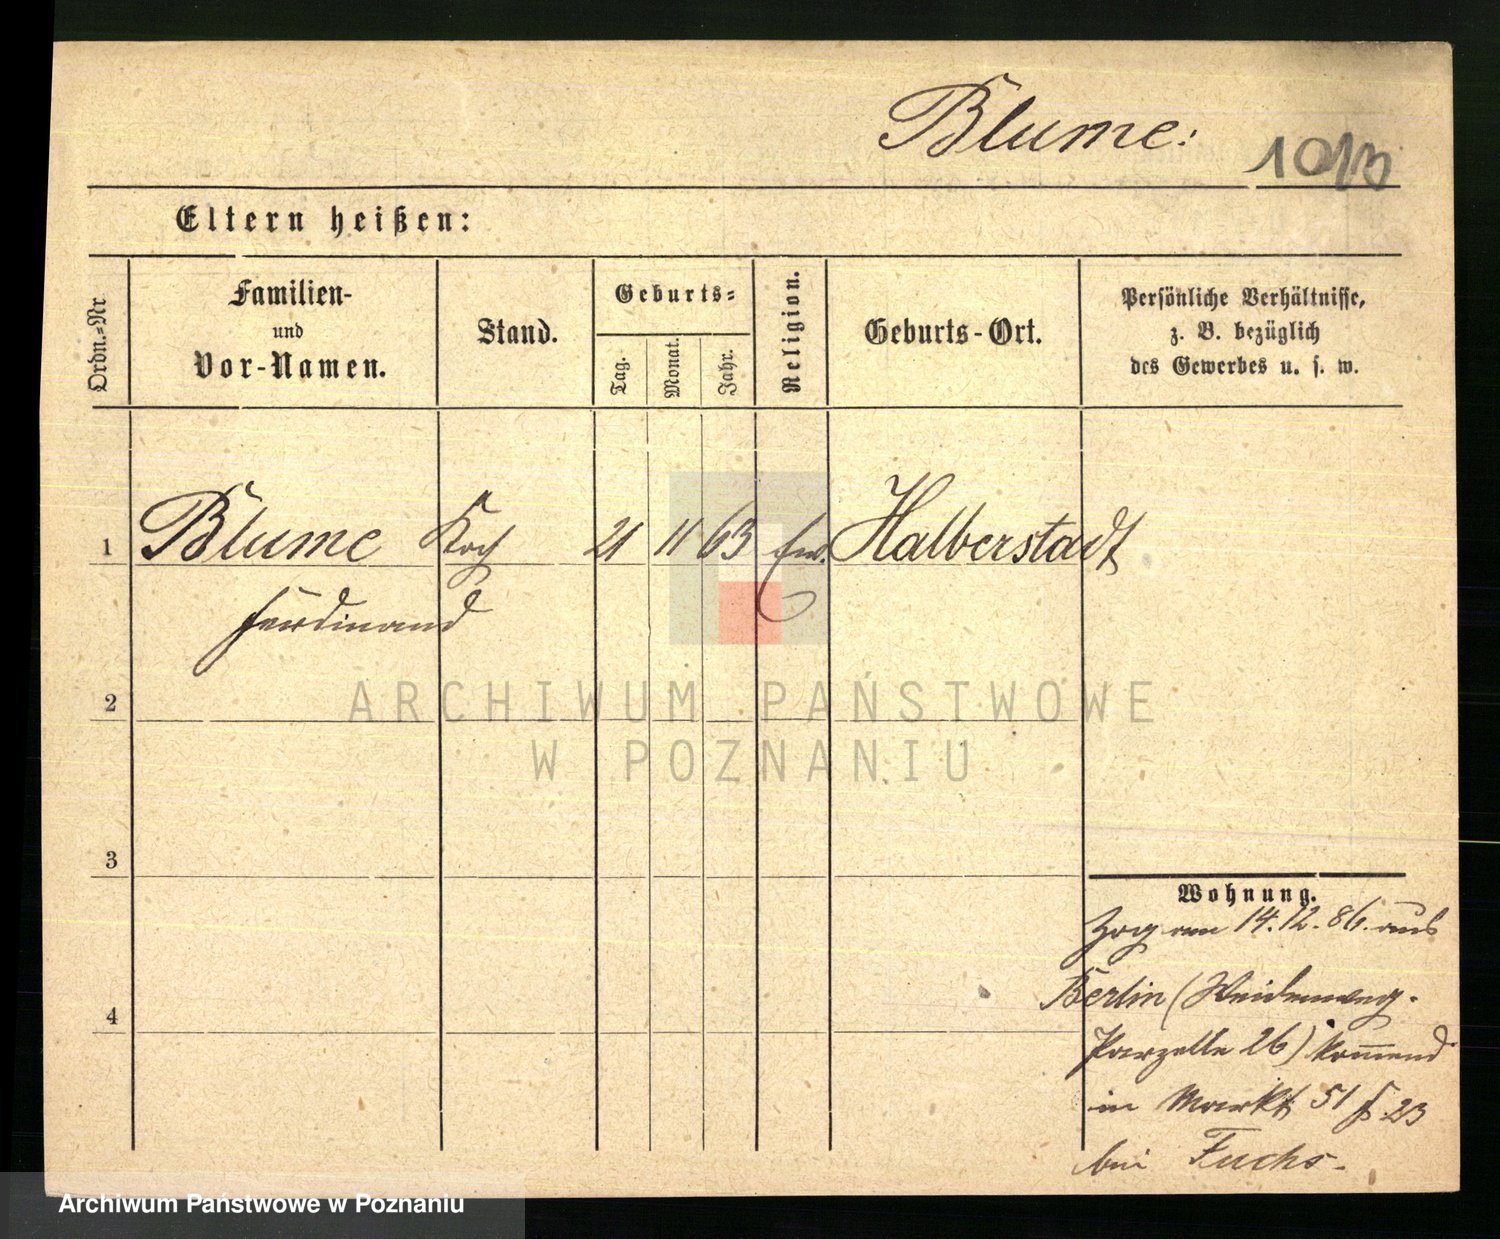 Blume:
1013
Eltern heißen:
Ordn.-Nr
Familien-
und
Vor-Namen.
Stand.
Geburts-
Tag.
Monat.
Jahr.
Religion.
Geburts-Ort.
Persönliche Verhältnisse,
z. B. bezüglich
des Gewerbes u. s. w.
1 Blume Koch 21 11 63 Halberstadt
Ferdinand
2
ARCHIWUM PAŃSTWOWE
W POZNANIU
3
Wohnung.
Zog am 14.12.86. aus
Berlin (Weidenweg-
Parzelle 26) kommend
in Markt 51 23
bei Fuchs.
4
Archiwum Państwowe w Poznaniu